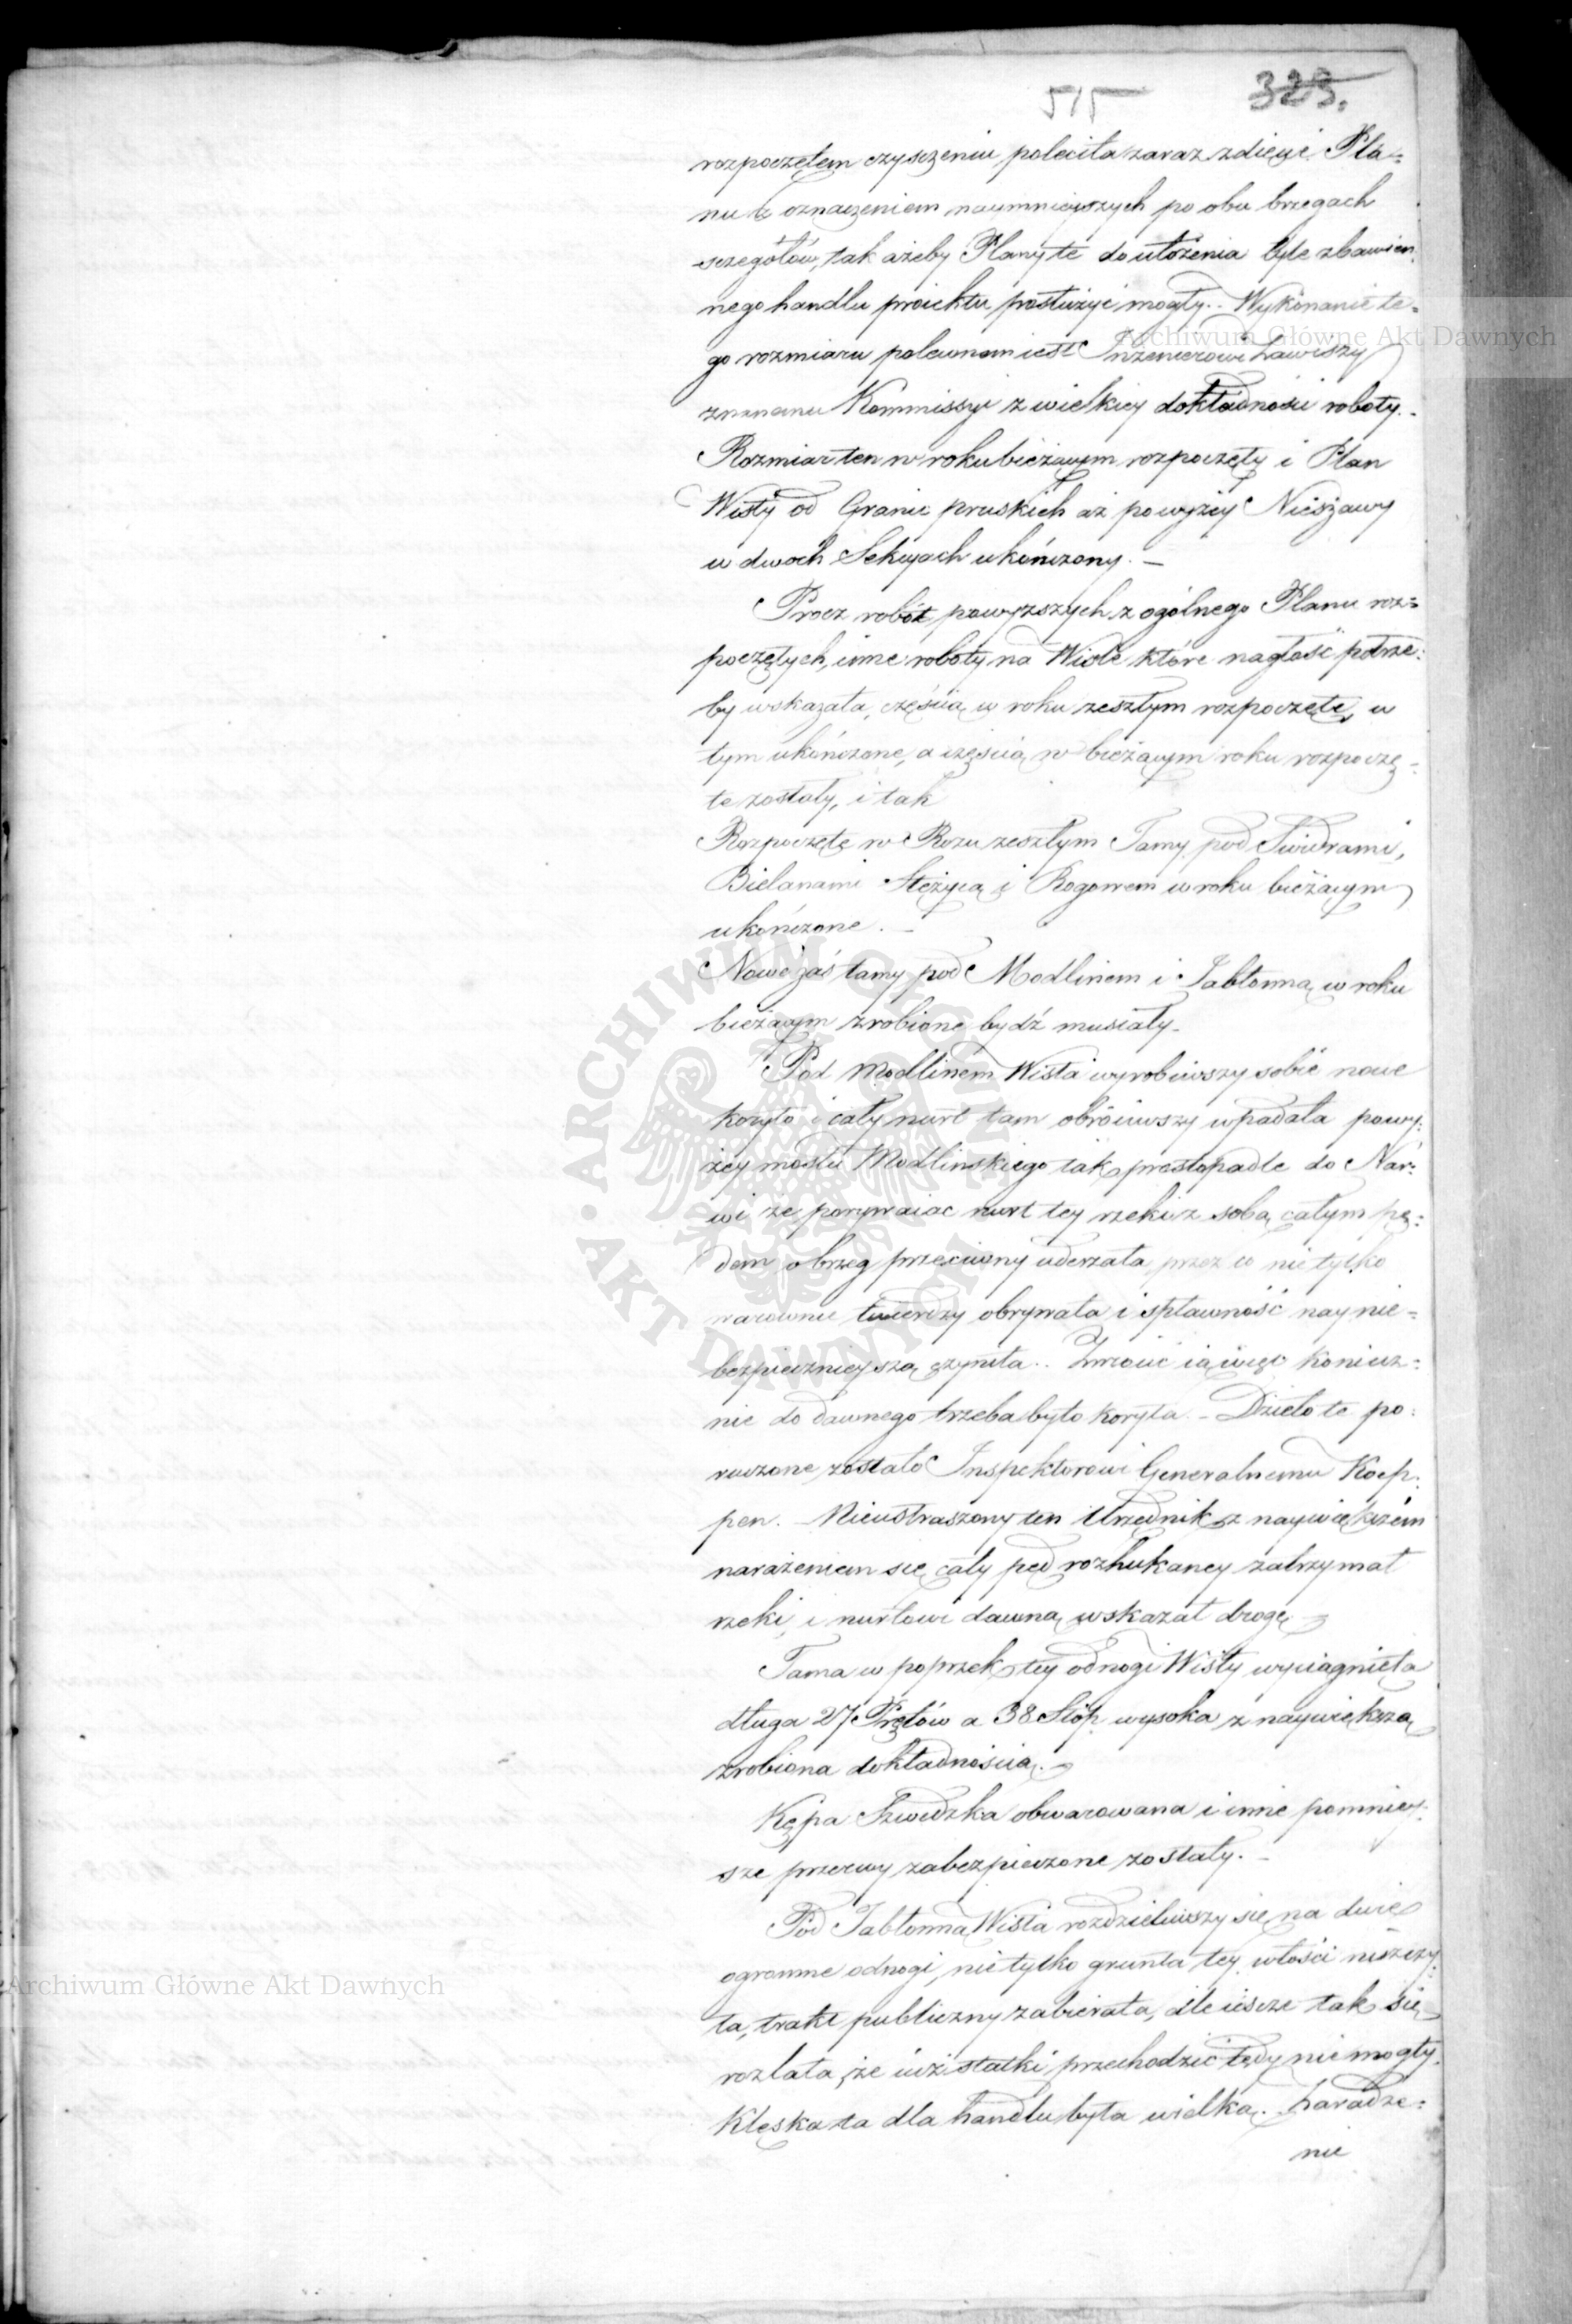 515 323.
rozpoczętem czysczeniu poleciła zaraz zdięcie Pla=
nu z oznaczeniem naymnieyszych po obu brzegach
sczegółów, tak ażeby Plany te do ułożenia tyle zbawien
nego handlu proiektu posłużyć mogły. Wykonanie te=
go rozmiaru polecanem iest Inżenierowi Zawiszy
znanemu Kommissyi z wielkiey dokładności roboty.
Rozmiar ten w roku bieżącym rozpoczęty i Plan
Wisły od Granic pruskich aż powyżey Nieszawy
w dwoch Sekcyach ukończony. —
Procz robót powyższych z ogólnego Planu roz=
poczętych, inne roboty na Wiśle które nagłość potrze=
by wskazała, częścią w roku zeszłym rozpoczęte, w
tym ukończone, a częścią w bieżącym roku rozpoczę=
te zostały, i tak
Rozpoczęte w Roku zeszłym Tamy pod Swidrami,
Bielanami Stężycą i Rogowem w roku bieżącym
ukończone. —
Nowe zaś tamy pod Modlinem i Jabłonną w roku
bieżącym zrobione bydź musiały.
Pod Modlinem Wisła wyrobiwszy sobie nowe
koryto i cały nurt tam obróciwszy wpadała powy=
żey mostu Modlinskiego tak prostopadle do Nar=
wi że porywaiąc nurt tey rzeki z sobą całym pę=
dem o brzeg przeciwny uderzała przez co nie tylko
warownie twierdzy obrywała i spławność nay nie=
bezpiecznieyszą czyniła. Zwrócić ią więc koniecz=
nie do dawnego trzeba było koryta. — Dzieło te po=
ruczone zostało Inspektorowi Generalnemu Koep=
pen. — Nieustraszony ten Urzędnik z naywiększém
narażeniem się cały pęd rozhukaney zatrzymał
rzeki, i nurtowi dawną wskazał drogę —
Tama w poprzek tey odnogi Wisły wyciągnięta
długa 27 Prętów a 38 Stóp wysoka z naywiększą
zrobiona dokładnością. —
Kępa Szwedzka obwarowana i inne pomniey=
sze przerwy zabezpieczone zostały. —
Pod Jabłonną Wisła rozdzieliwszy się na dwie
ogromne odnogi, nie tylko grunta tey włości niszczy=
ła, trakt publiczny zabierała, ale iescze tak się
rozlała, że iuż statki przechodzić tędy nie mogły.
Klęska ta dla handlu była wielką. Zaradze=
nie
Archiwum Główne Akt Dawnych
Archiwum Główne Akt Dawnych
ARCHIWUM GŁÓWNE · AKT DAWNYCH ·